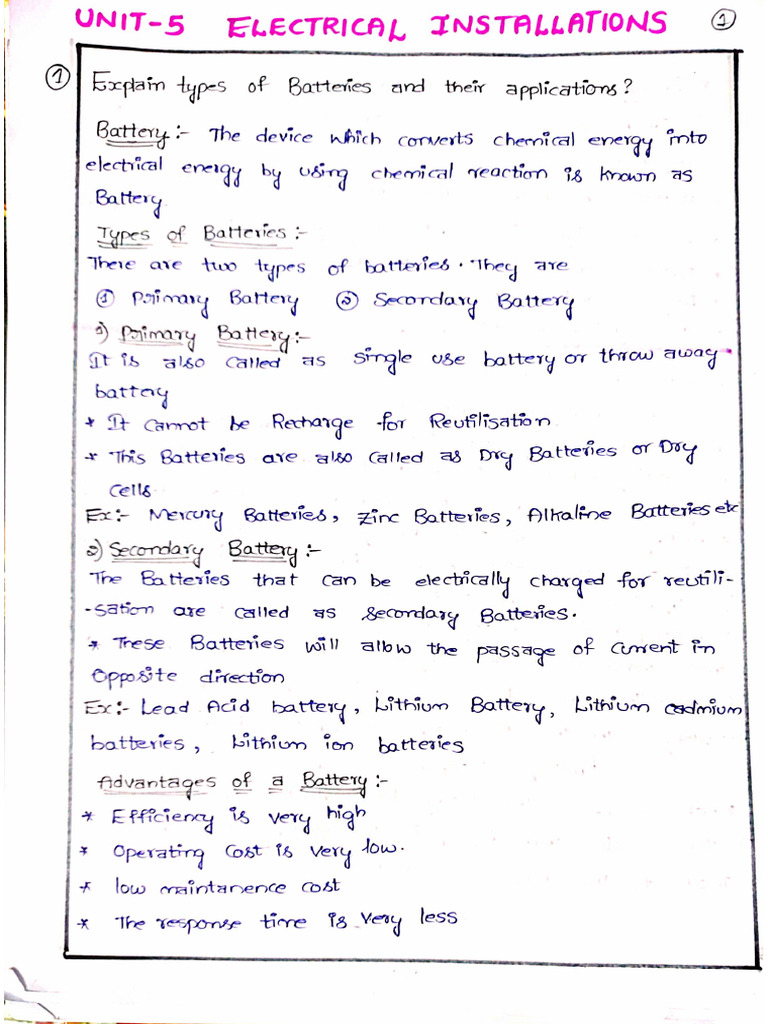 UNIT-5 ELECTRICAL INSTALLATIONS ①
① Explain types of Batteries and their applications?
Battery:- The device which converts chemical energy into
electrical energy by using chemical reaction is known as
Battery.
Types of Batteries:-
There are two types of batteries. They are
① Primary Battery ② Secondary Battery
1) Primary Battery:-
It is also called as single use battery or throw away
battery
* It cannot be Recharge for Reutilisation
* This Batteries are also called as Dry Batteries or Dry
cells.
Ex:- Mercury Batteries, Zinc Batteries, Alkaline Batteries etc
2) Secondary Battery:-
The Batteries that can be electrically charged for reutili-
-sation are called as secondary Batteries.
* These Batteries will allow the passage of current in
opposite direction
Ex:- Lead Acid battery, Lithium Battery, Lithium cadmium
batteries, Lithium ion batteries
Advantages of a Battery:-
* Efficiency is very high
* Operating cost is very low.
* low maintanence cost
* The response time is very less